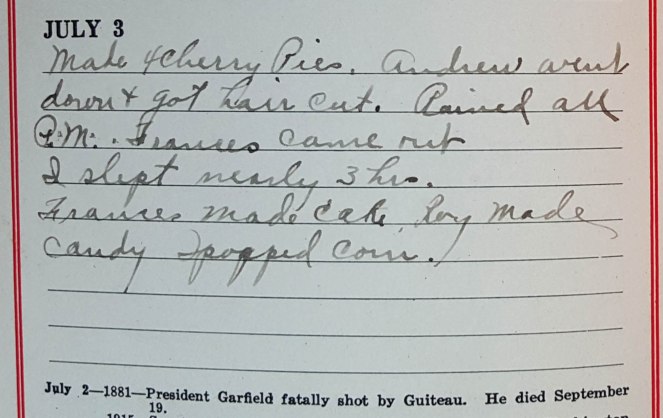 JULY 3
Made 4 Cherry Pies. Andrew went
down & got hair cut. Rained all
P.M. Frances came out
I slept nearly 3 hrs.
Frances made cake, Roy made
candy & popped corn.
July 2—1881—President Garfield fatally shot by Guiteau. He died September
19.